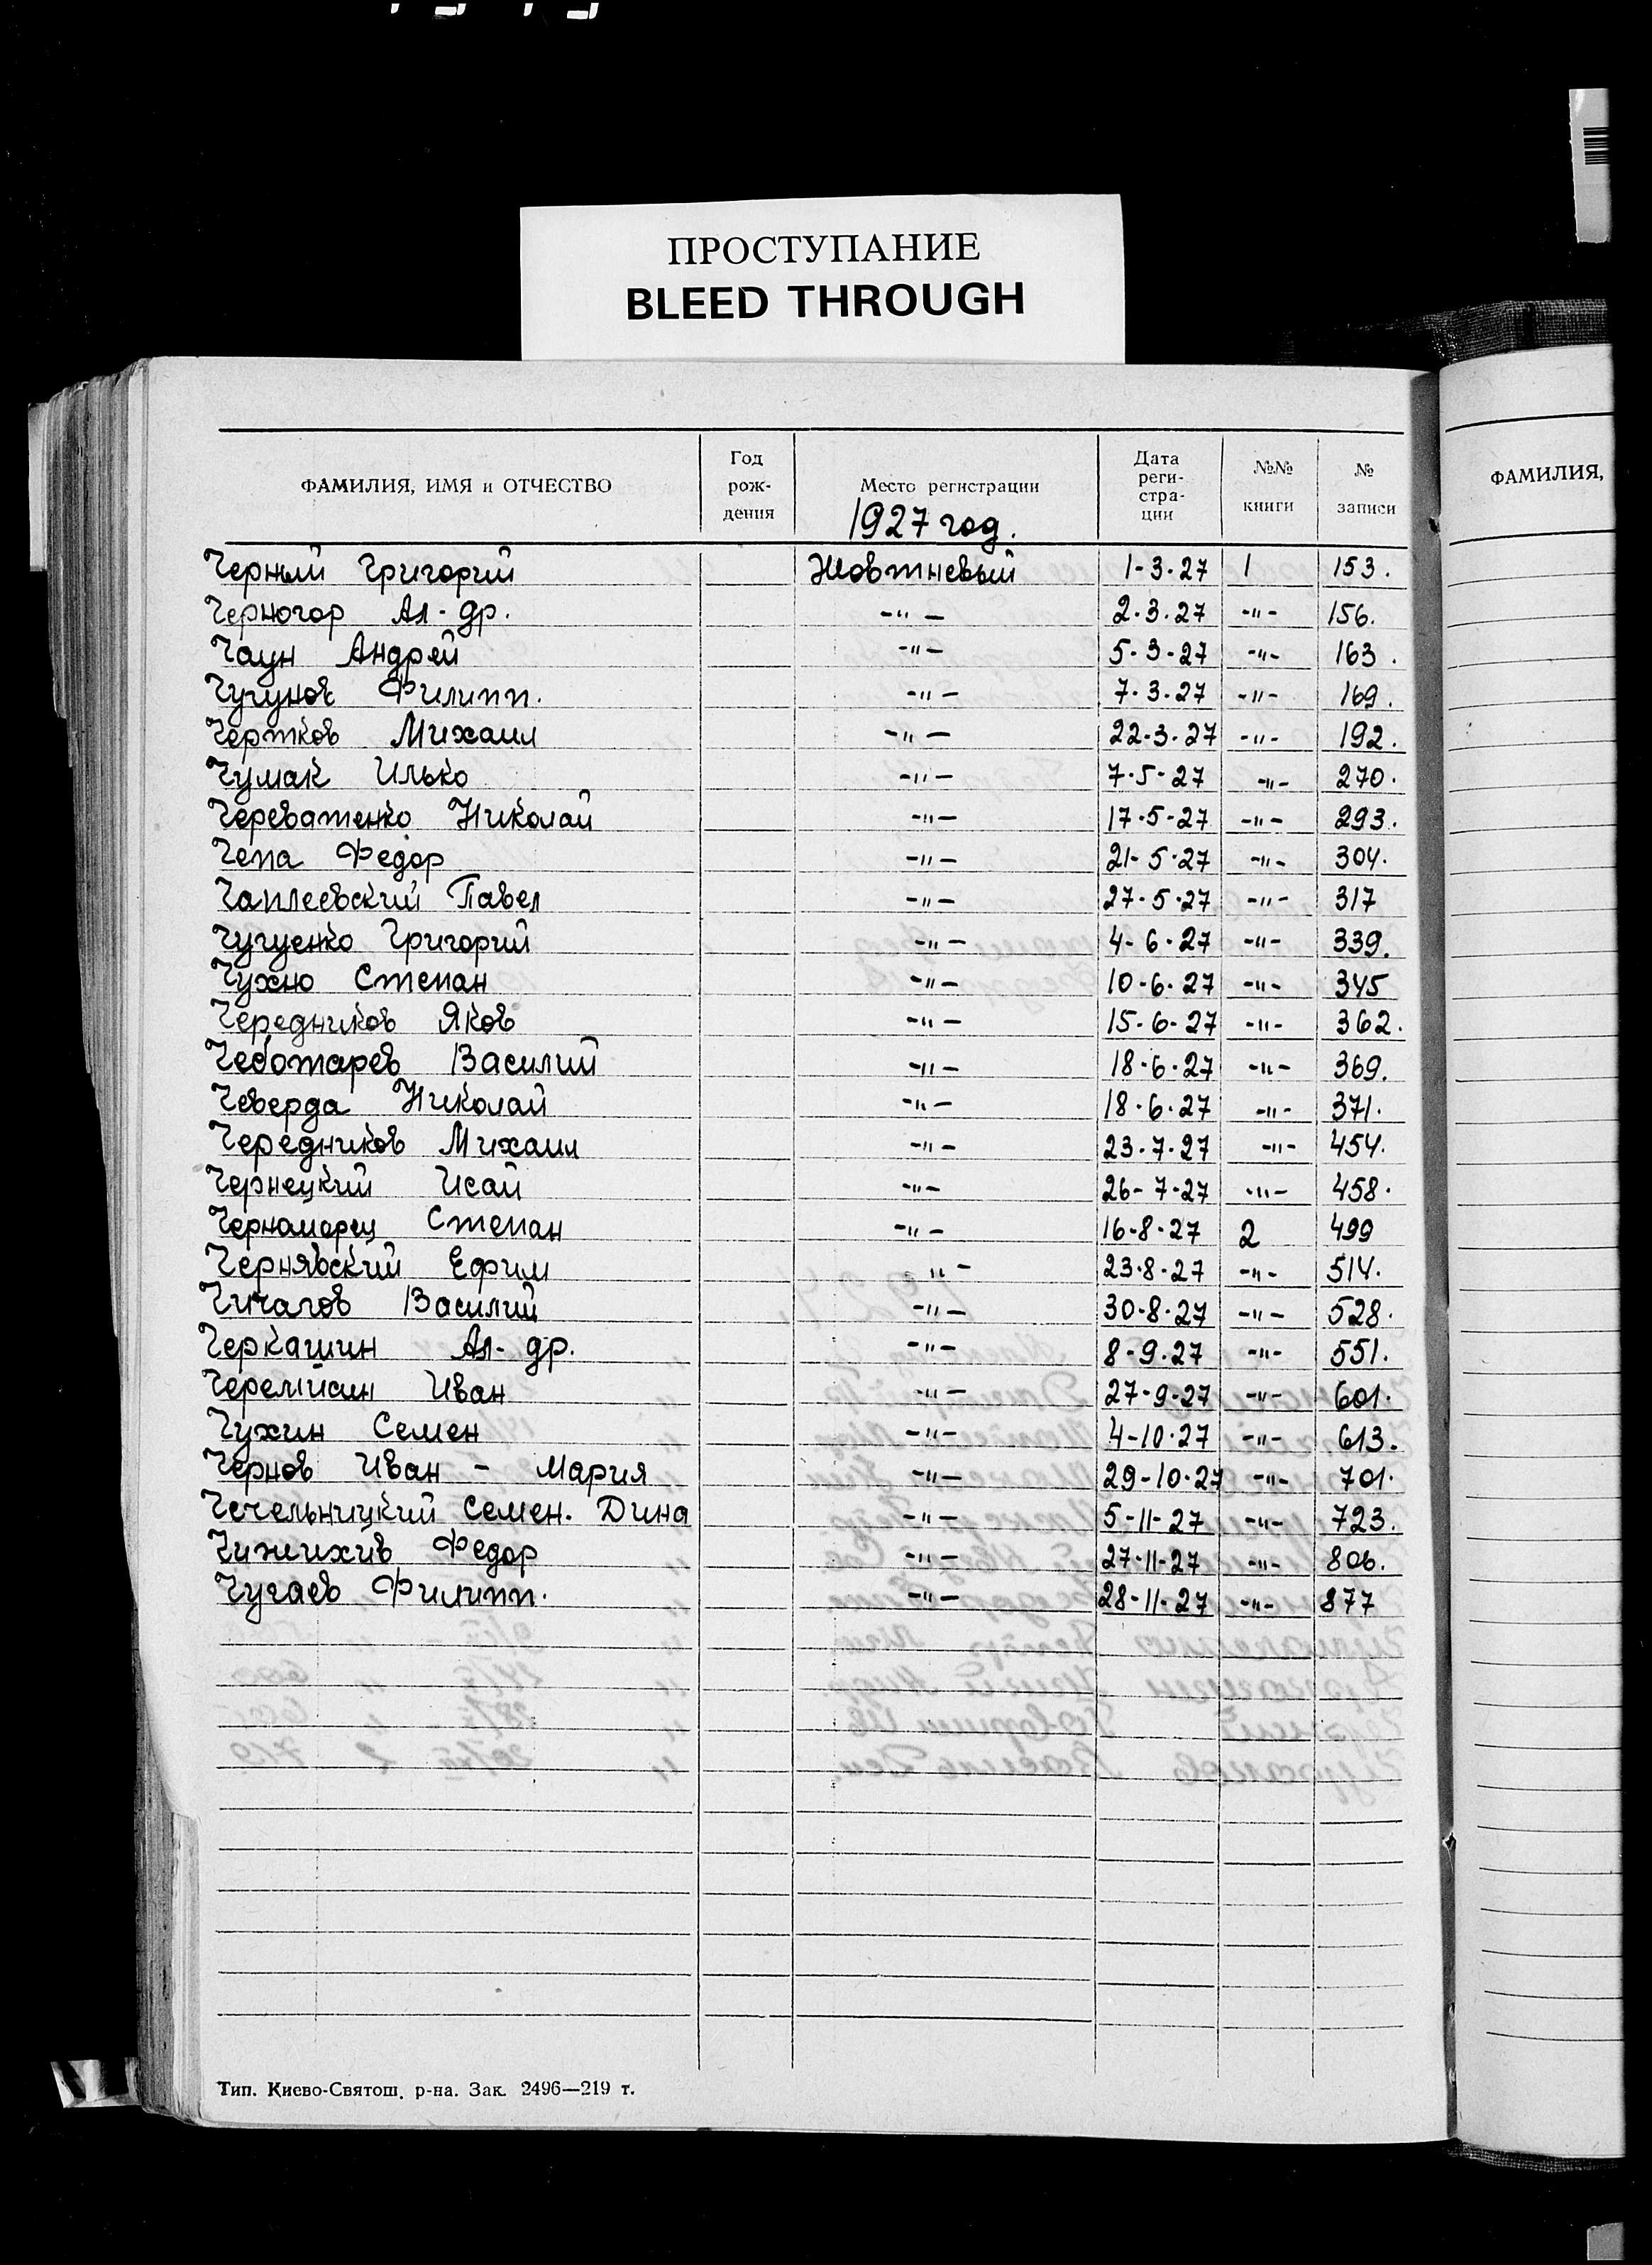 ПРОСТУПАНИЕ
BLEED THROUGH
ФАМИЛИЯ, ИМЯ и ОТЧЕСТВО Год рож- дения Место регистрации 1927 год. Дата реги- стра- ции №№ книги № записи ФАМИЛИЯ,
Черный Григорий Жовтневый 1-3-27 1 153.
Черногор Ал-др. -"- 2.3.27 -"- 156.
Чаун Андрей -"- 5-3-27 -"- 163.
Чугунов Филипп. -"- 7.3.27 -"- 169.
Чертков Михаил -"- 22-3-27 -"- 192.
Чумак Илько -"- 7-5-27 -"- 270.
Череватенко Николай -"- 17-5-27 -"- 293.
Чепа Федор -"- 21-5-27 -"- 304.
Чаплеевский Павел -"- 27-5-27 -"- 317
Чугуенко Григорий -"- 4-6-27 -"- 339.
Чухно Степан -"- 10-6-27 -"- 345
Чередников Яков -"- 15-6-27 -"- 362.
Чеботарев Василий -"- 18-6-27 -"- 369.
Чеверда Николай -"- 18-6-27 -"- 371.
Чередников Михаил -"- 23-7-27 -"- 454.
Чернецкий Исай -"- 26-7-27 -"- 458.
Черноморец Степан -"- 16-8-27 2 499
Чернявский Ефим "- 23-8-27 -"- 514.
Чичагов Василий -"- 30-8-27 -"- 528.
Черкашин Ал-др. -"- 8-9-27 -"- 551.
Иван -"- 27-9-27 -"- 601.
Чухин Семен -"- 4-10-27 -"- 613.
Чернов Иван - Мария -"- 29-10-27 -"- 701.
Чечельницкий Семен. Дина -"- 5-11-27 -"- 723.
Чижихив Федор -"- 27-11-27 -"- 806.
Чугаев Филипп. -"- 28-11-27 -"- 877
Тип. Киево-Святош. р-на. Зак. 2496—219 т.